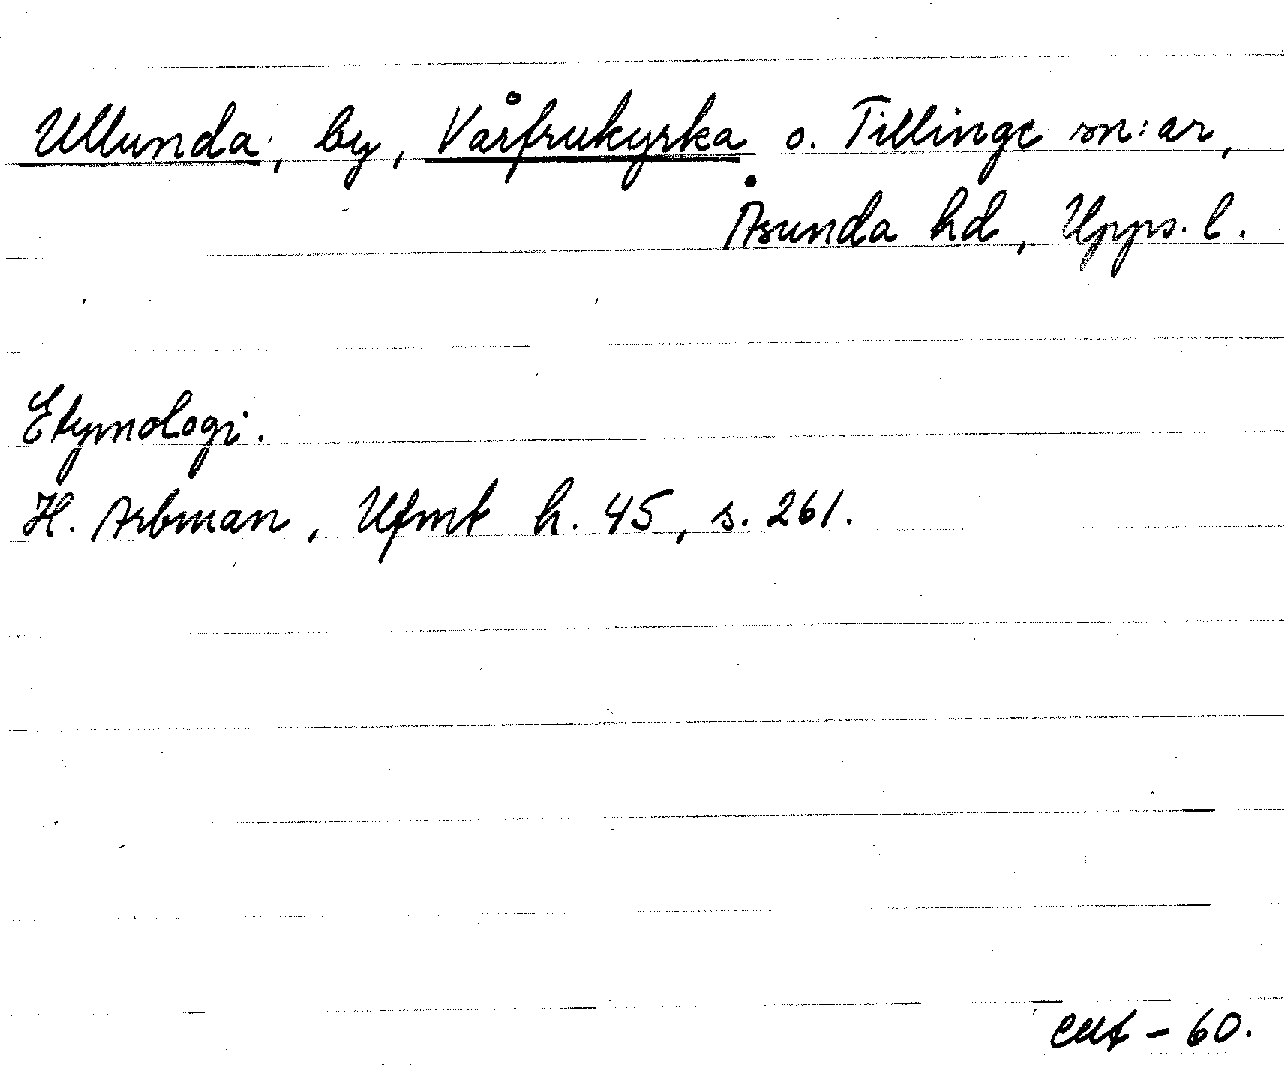 Ullunda, by, Vårfrukyrka o. Tillinge sn:ar,
Åsunda hd, Upps. l.
Etymologi.
H. Arbman, Ufmt h. 45, s. 261.
- 60.